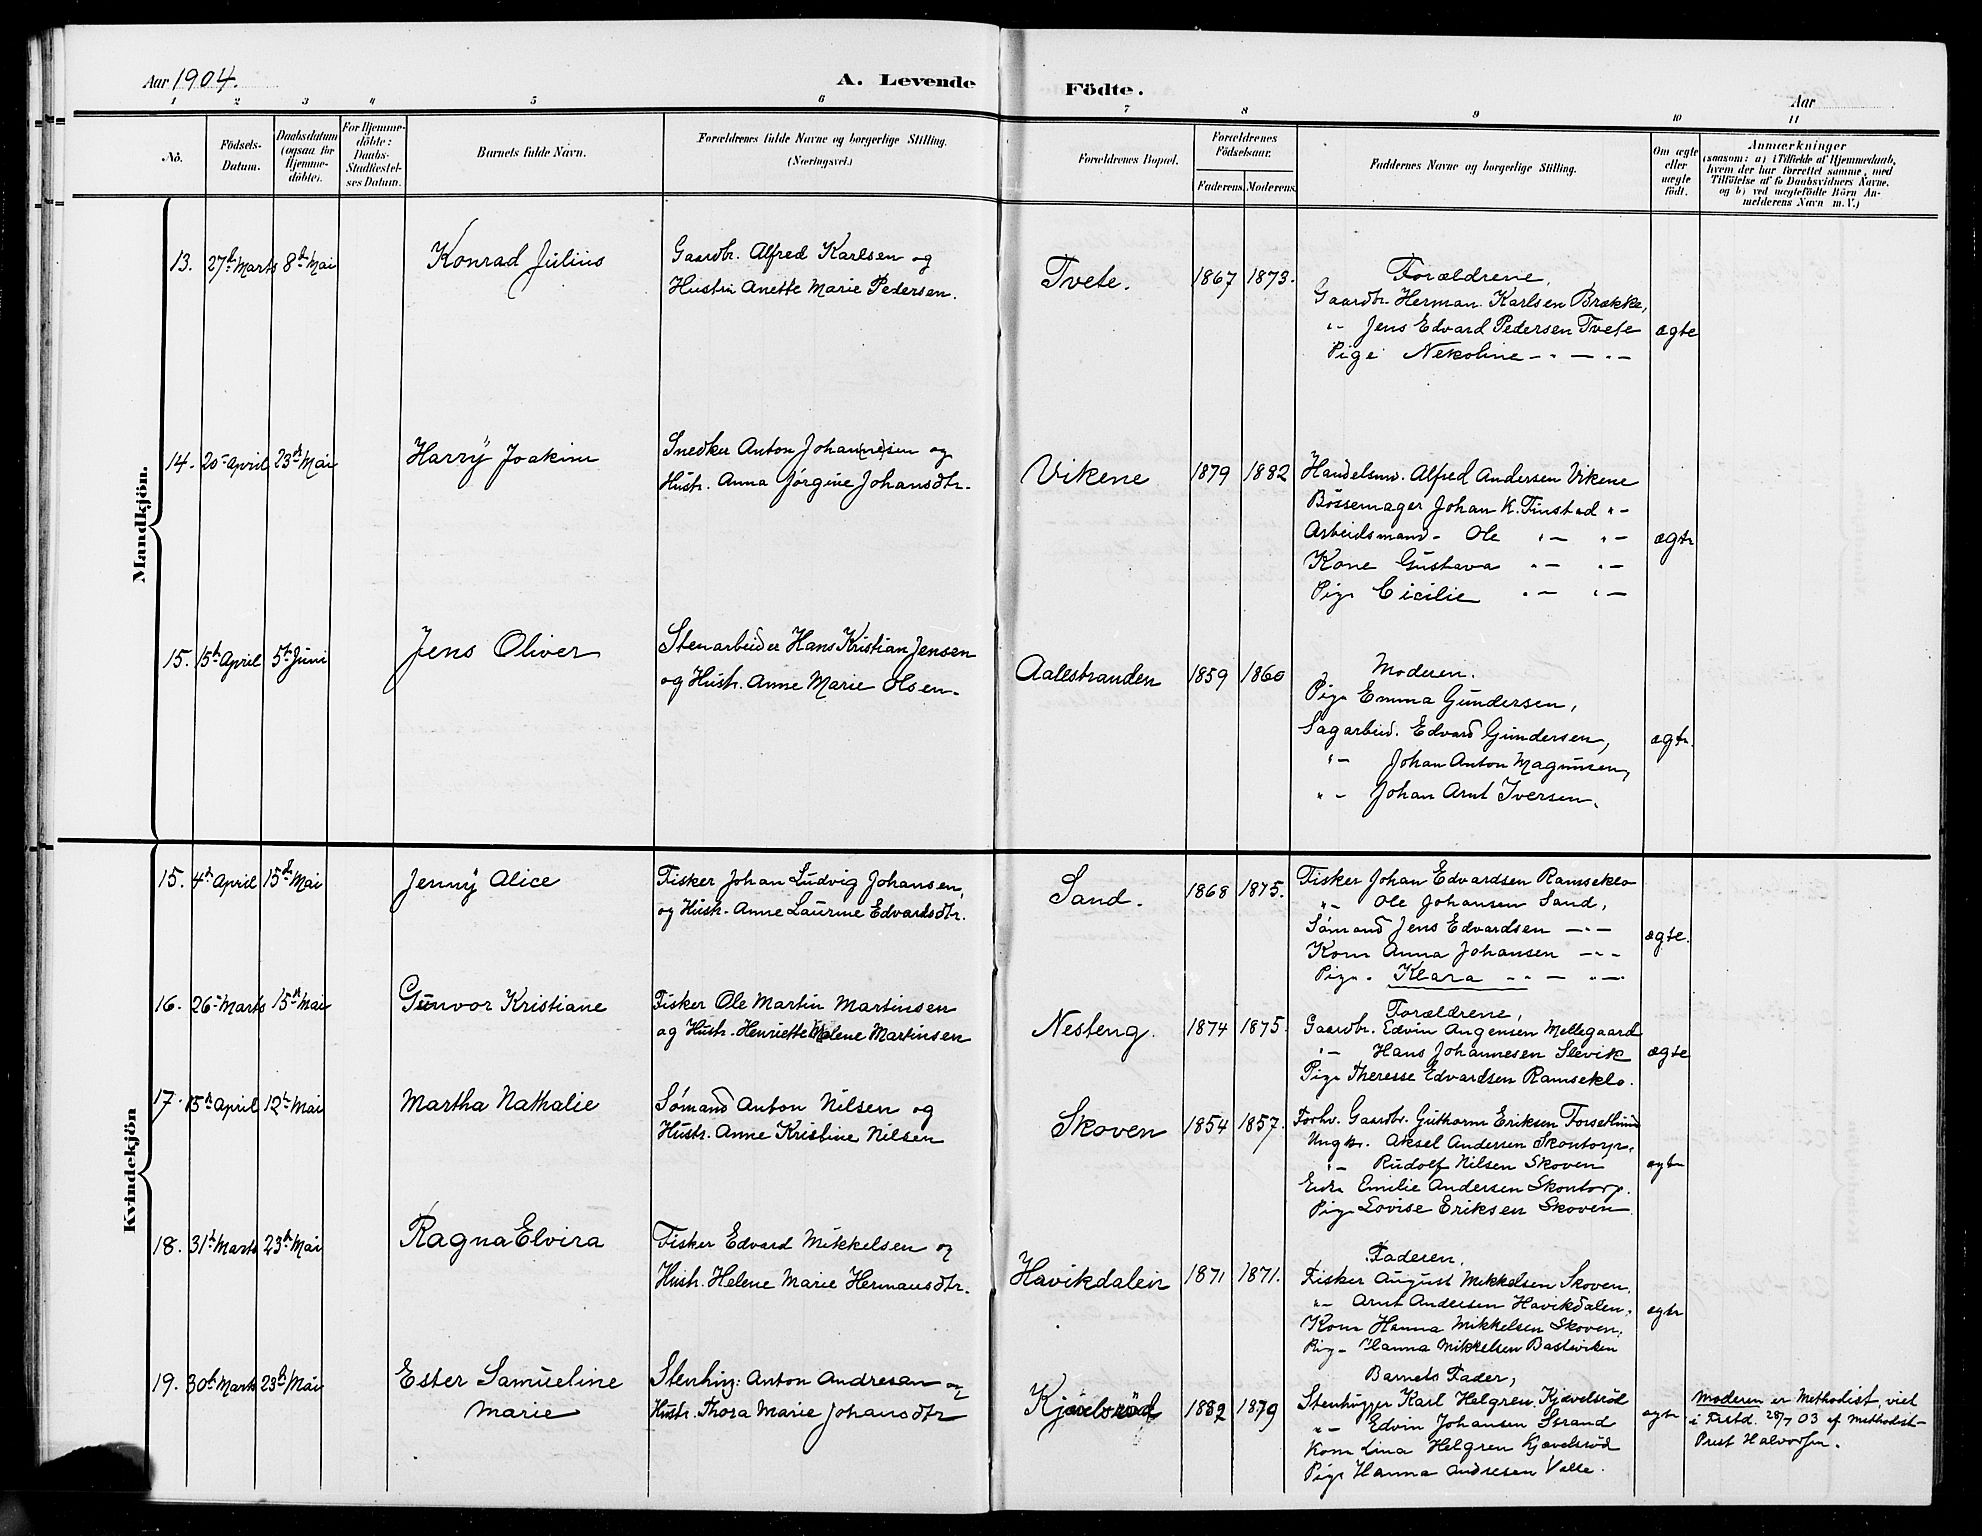 Aar 1904.
A. Levende Födte.
Aar
1 2 3 4 5 6 7 8 9 10 11
No.
Födsels-Datum.
Daabsdatum (ogsaa for Hjemme-döbte).
For Hjemme-döbte: Daabs-Stadfæstel-ses Datum.
Barnets fulde Navn.
Forældrenes fulde Navne og borgerlige Stilling.
(Næringsvei.)
Forældrenes Bopæl.
Forældrenes Födselsaar.
Faderens. Moderens.
Faddernes Navne og borgerlige Stilling.
Om ægte eller uægte födt.
Anmærkninger
(saasom: a) i Tilfælde af Hjemmedaab,
hvem der har forrettet samme, med
Tilföielse af to Daabsvidners Navne,
og b) ved uægtefödte Börn An-
melderens Navn m. V.)
Mandkjön.
13. 27de Marts 8de Mai Konrad Julius
Gaardbr. Alfred Karlsen og
Hustru Anette Marie Pedersen.
Tvete. 1867 1873.
Forældrene,
Gaardbr. Herman Karlsen Brække,
"- Jens Edvard Pedersen Tvete
Pige Nekoline -"- -"-
ægte
14. 20- April 23de Mai Harry Joakim
Snedker Anton Johan(ne)sen og
Hustr. Anna Jørgine Johansdtr.
Vikene 1879 1882
Handelsm. Alfred Andersen Vikene
Bössemager Johan K. Tinstad "-
Arbeidsmand- Ole "- "-
Kone Gustava "- "-
Pige Cicilie "- "-
ægte
15. 15de April 5te Juni Jens Oliver
Stenarbeider Hans Kristian Jensen
og Hustr. Anne Marie Olsen.
Aalestranden 1859 1860
Moderen.
Pige Emma Gundersen,
Sagarbeid. Edvard Gundersen,
"- Johan Anton Magnusen,
"- Johan Arnt Iversen.
ægte.
Kvindekjön
15. 4de April 15de Mai Jenny Alice
Fisker Johan Ludvig Johansen,
og Hustr. Anne Laurine Edvardsdtr.
Sand. 1868 1875.
Fisker Johan Edvardsen Ramseklo
"- Ole Johansen Sand,
Sømand Jens Edvardsen -"-
Kone Anna Johansen -"-
Pige. Klara "- -"-
ægte.
16. 26- Marts 15de Mai Gunvor Kristiane
Fisker Ole Martin Martinsen
og Hustr. Henriette Malene Martinsen
Nesteng. 1874 1875.
Forældrene,
Gaardbr. Edvin Angensen Mellegaard
"- Hans Johannesen Slevik
Pige Theresse Edvardsen Ramseklo.
ægte
17. 15de April 12te Mai Martha Nathalie
Sømand Anton Nilsen og
Hustr. Anne Kristine Nilsen
Skoven 1854 1857.
Forhv. Gaardbr. Guthorm Eriksen Forsetlund
Ungkr. Aksel Andersen Skontorp,
"- Rudolf Nilsen Skoven
Enke Emilie Andersen Skontorp.
Pige Lovise Eriksen Skoven
ægte
18. 31te Marts 23de Mai Ragna Elvira
Fisker Edvard Mikkelsen og
Hustr. Helene Marie Hermansdtr.
Havikdalen 1871 1871.
Faderen,
Fisker August Mikkelsen Skoven
"- Arnt Andersen Havikdalen,
Kone Hanna Mikkelsen Skoven,
Pige Hanna Mikkelsen Basteviken
ægte
19. 30de Marts 23de Mai Ester Samueline
Marie
Stenhug: Anton Andresen og
Hustr. Thora Marie Johansdtr
Kjævelsröd 1882 1879
Barnets Fader,
Stenhugger Karl Helgren Kjævelsröd
"- Edvin Johansen Strand
Kone Lina Helgren Kjævelsröd
Pige Hanna Andresen Valle.
ægte
Moderen er Methodist, viet
i Frstd. 28/7 03 af Methodist-
Prest Halvorsen.